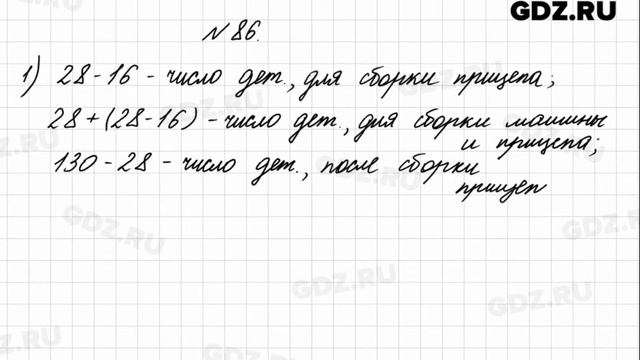 GDZ.RU
№ 86.
1) 28-16 - число дет., для сборки прицепа;
28+(28-16) - число дет., для сборки машины
и прицепа;
130-28 - число дет., после сборки
прицеп
GDZ.RU
GDZ.RU
GDZ.RU
GDZ.RU
GDZ.RU